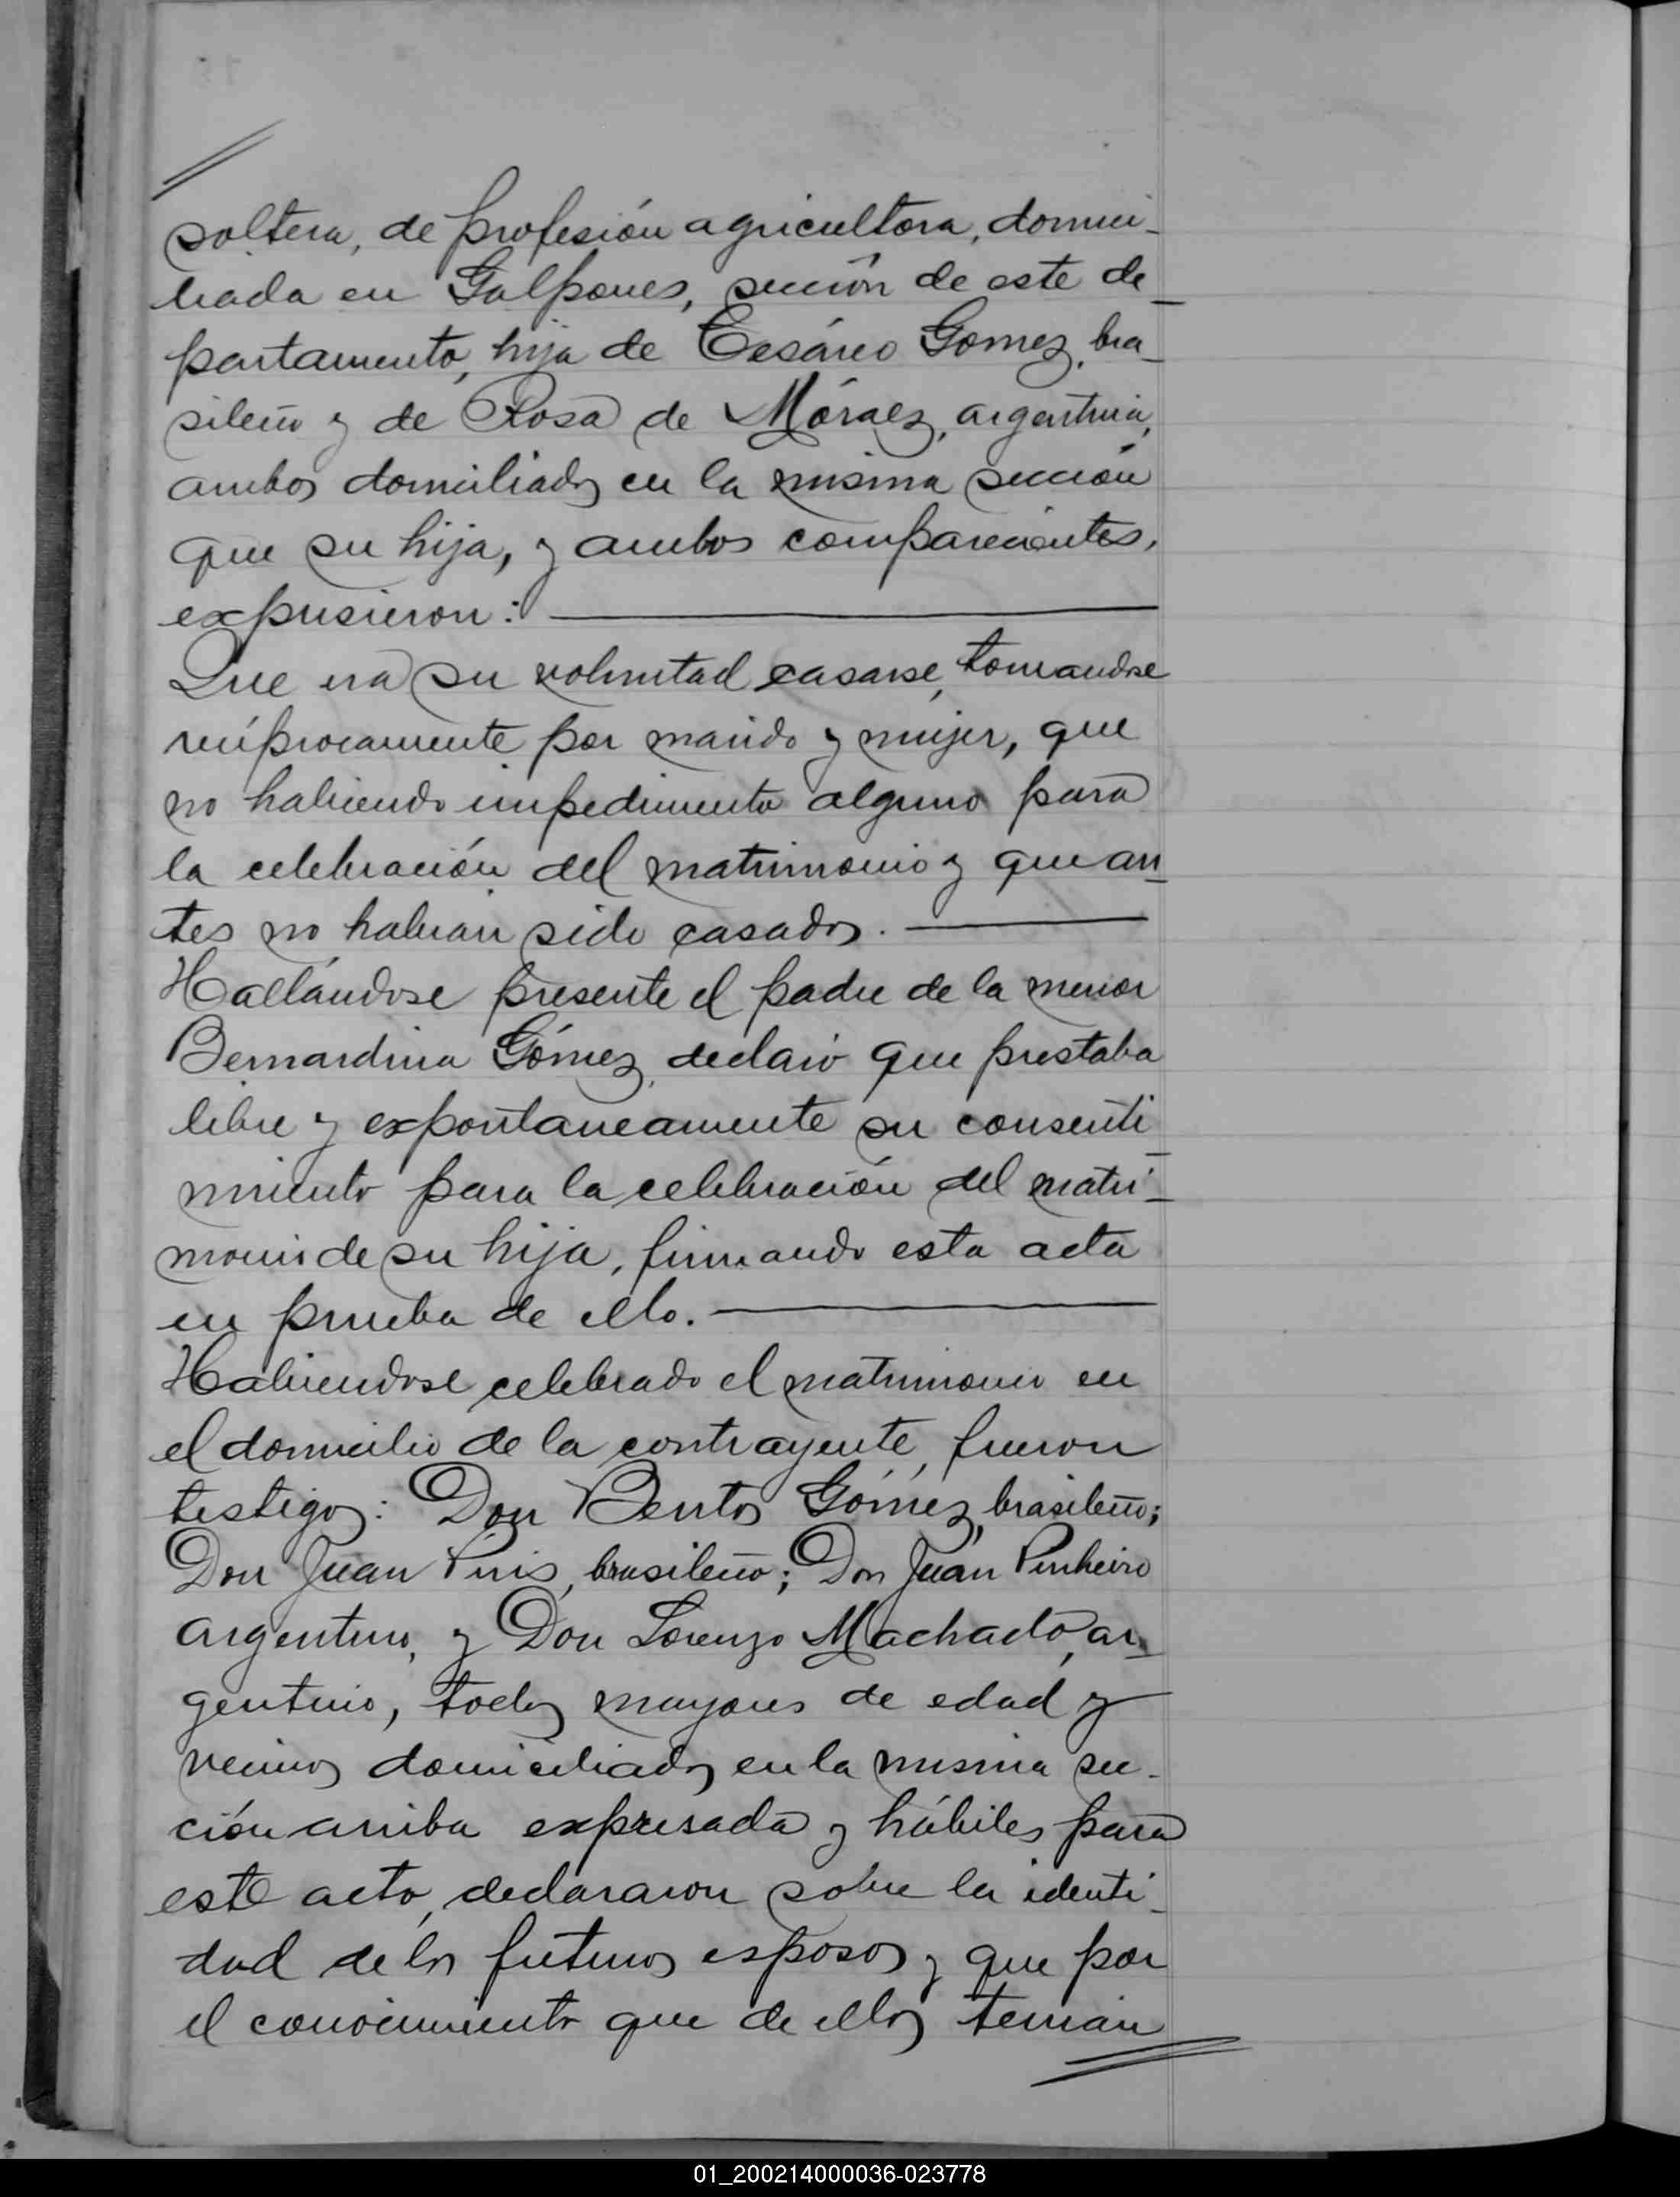 //
soltera, de profesión agricultora, domici-
liada en Galpones, sección de este de-
partamento, hija de Cesáreo Gomez, bra-
sileño y de Rosa de Móraez, argentina,
ambos domiciliados en la misma sección
que su hija, y ambos comparecientes,
expusieron:
Que era su voluntad casarse, tomandose
recíprocamente por marido y mujer, que
no habiendo impedimento alguno para
la celebración del matrimonio y que an-
tes no habian sido casados.
Hallándose presente el padre de la menor
Bernardina Gómez, declaró que prestaba
libre y expontaneamente su consenti-
miento para la celebración del matri-
monio de su hija, firmando esta acta
en prueba de ello.
Habiendose celebrado el matrimonio en
el domicilio de la contrayente, fueron
testigos: Don Bentos Gómez, brasileño;
Don Juan Piris, brasileño; Don Juan Pinheiro
argentino, y Don Lorenzo Machado, ar-
gentino, todos mayores de edad y
vecinos domiciliados en la misma sec-
ción arriba expresada y hábiles para
este acto, declararon sobre la identi-
dad de los futuros esposos y que por
el conocimiento que de ellos tenian
//
01_200214000036-023778